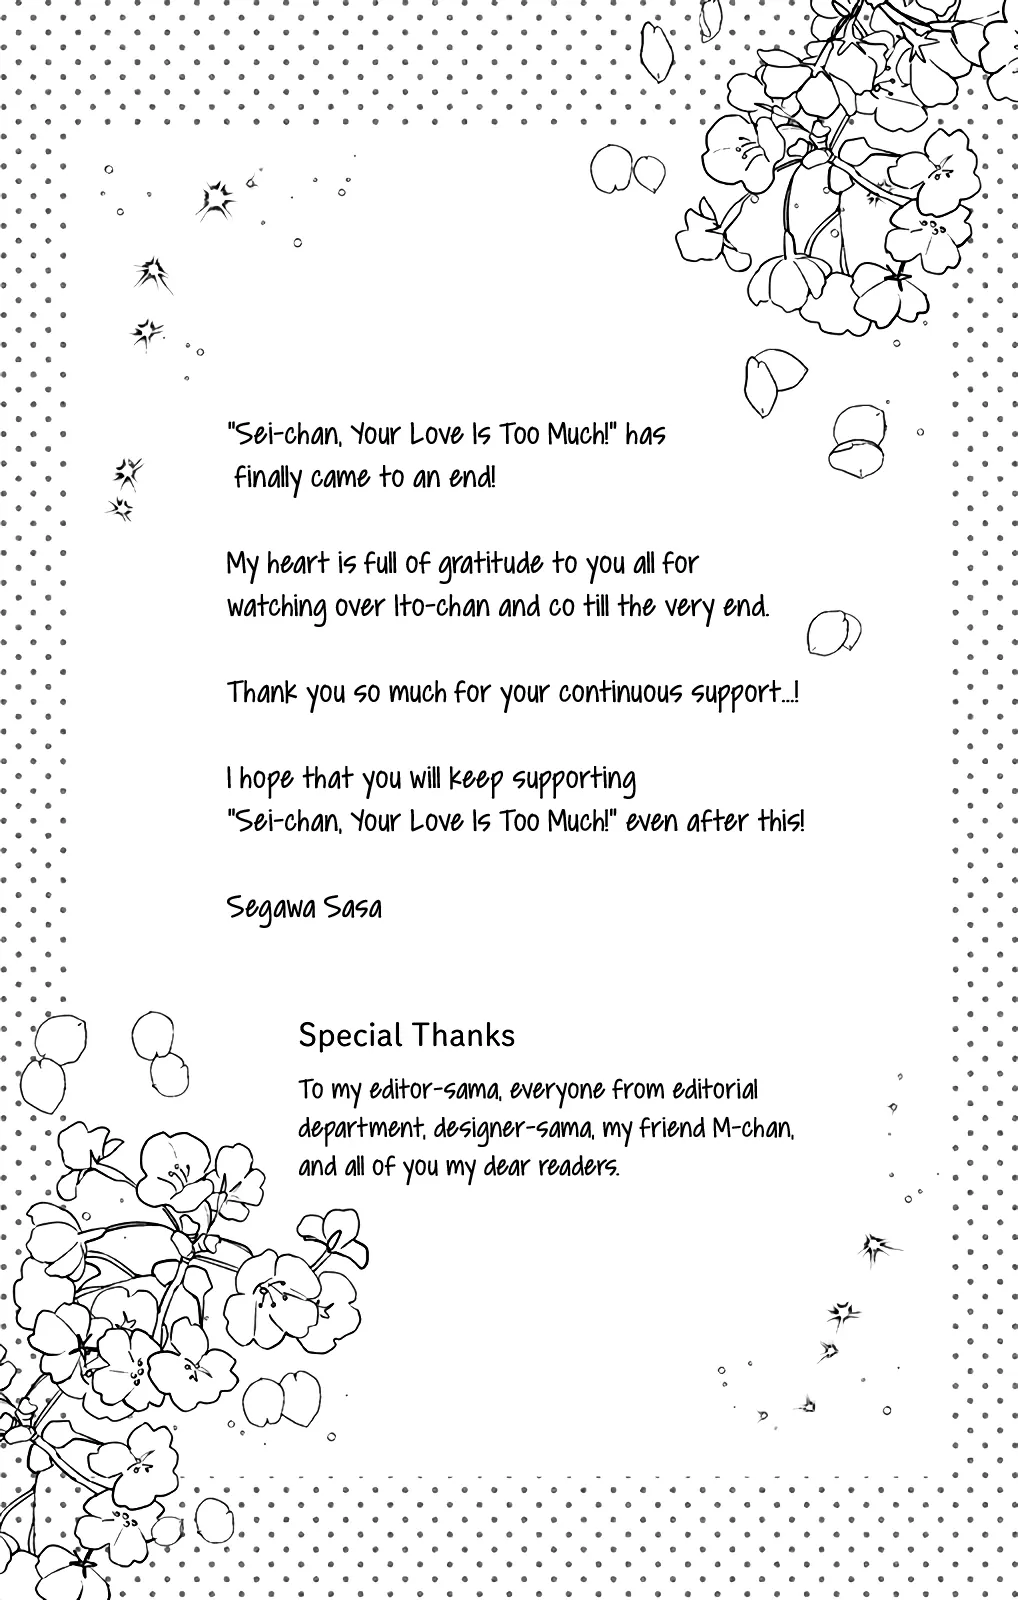 "Sei-chan, Your Love Is Too Much!" has
finally came to an end!
My heart is full of gratitude to you all for
watching over Ito-chan and co till the very end.
Thank you so much for your continuous support...!
I hope that you will keep supporting
"Sei-chan, Your Love Is Too Much!" even after this!
Segawa Sasa
Special Thanks
To my editor-sama, everyone from editorial
department, designer-sama, my friend M-chan,
and all of you my dear readers.